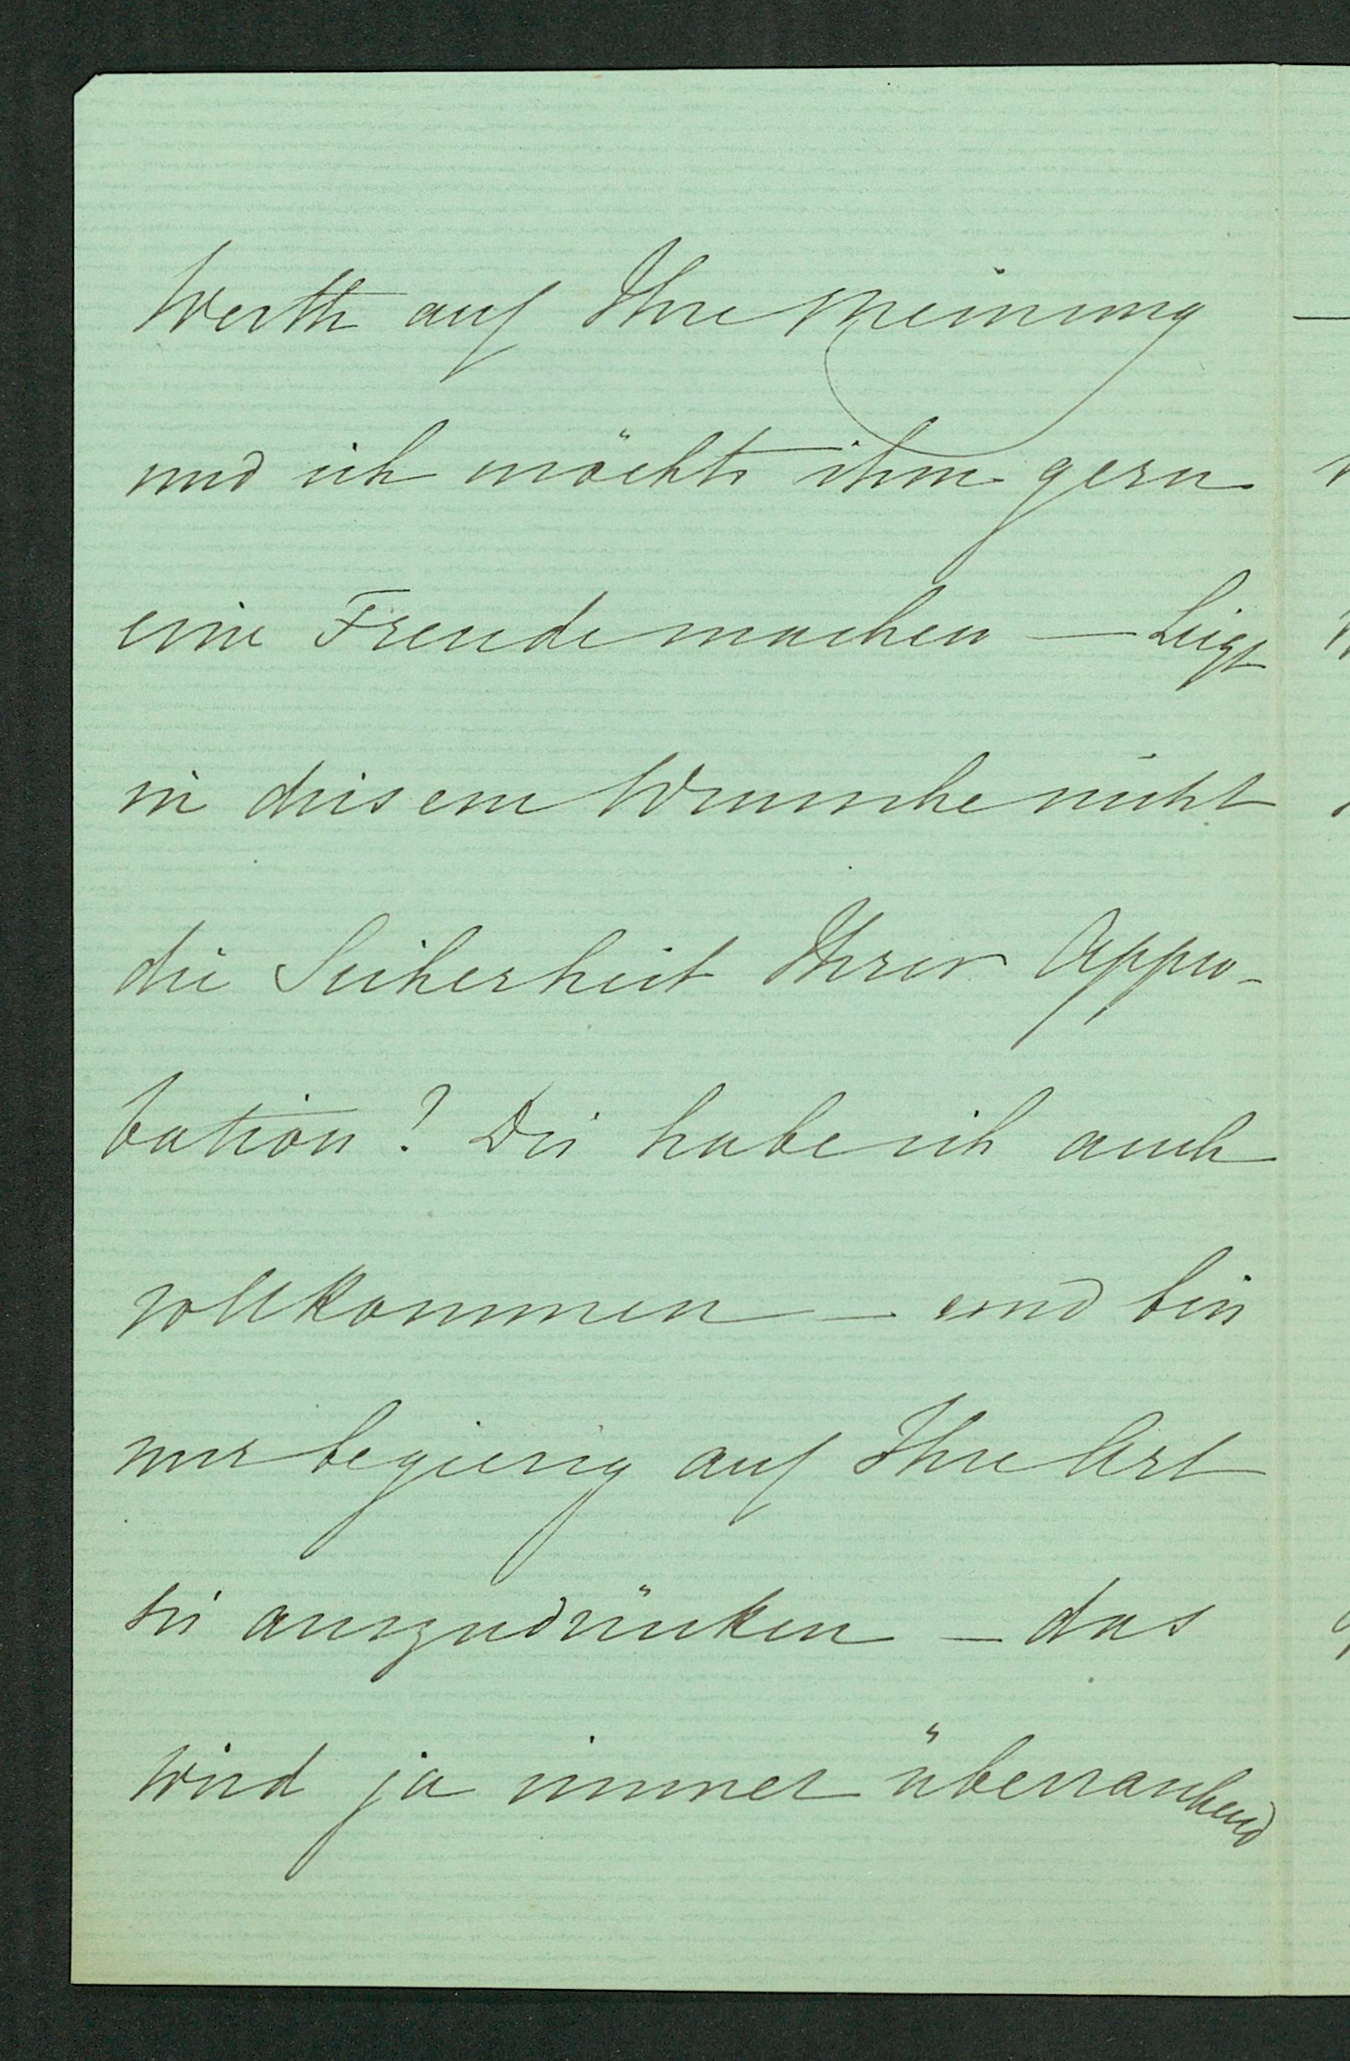 Werth auf Ihre Meinung
und ich möchte ihm gern
eine Freude machen – Liegt
in diesem Wunsche nicht
die Sicherheit Ihrer Appro-
bation? Die habe ich auch
vollkommen – und bin
nur begierig auf Ihre Art
sie auszudrücken – das
wird ja immer überraschend